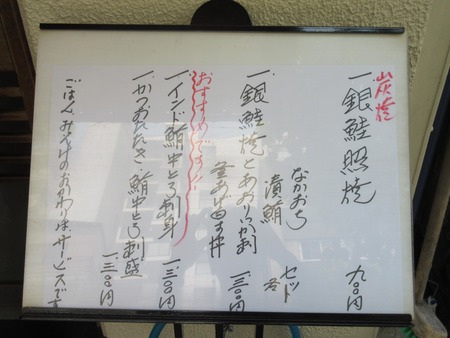 炭焼
一、銀鮭照焼 九〇〇円
なかおち
漬鮪 セット
一、銀鮭焼とあおりいか刺 一、三〇〇円
釜あげ丼
おすすめです!!
一、インド鮪中とろ刺身 一、三〇〇円
一、かつおたたき 鮪中とろ刺盛 一、三〇〇円
ごはん、みそ汁のおかわりは、サービスです